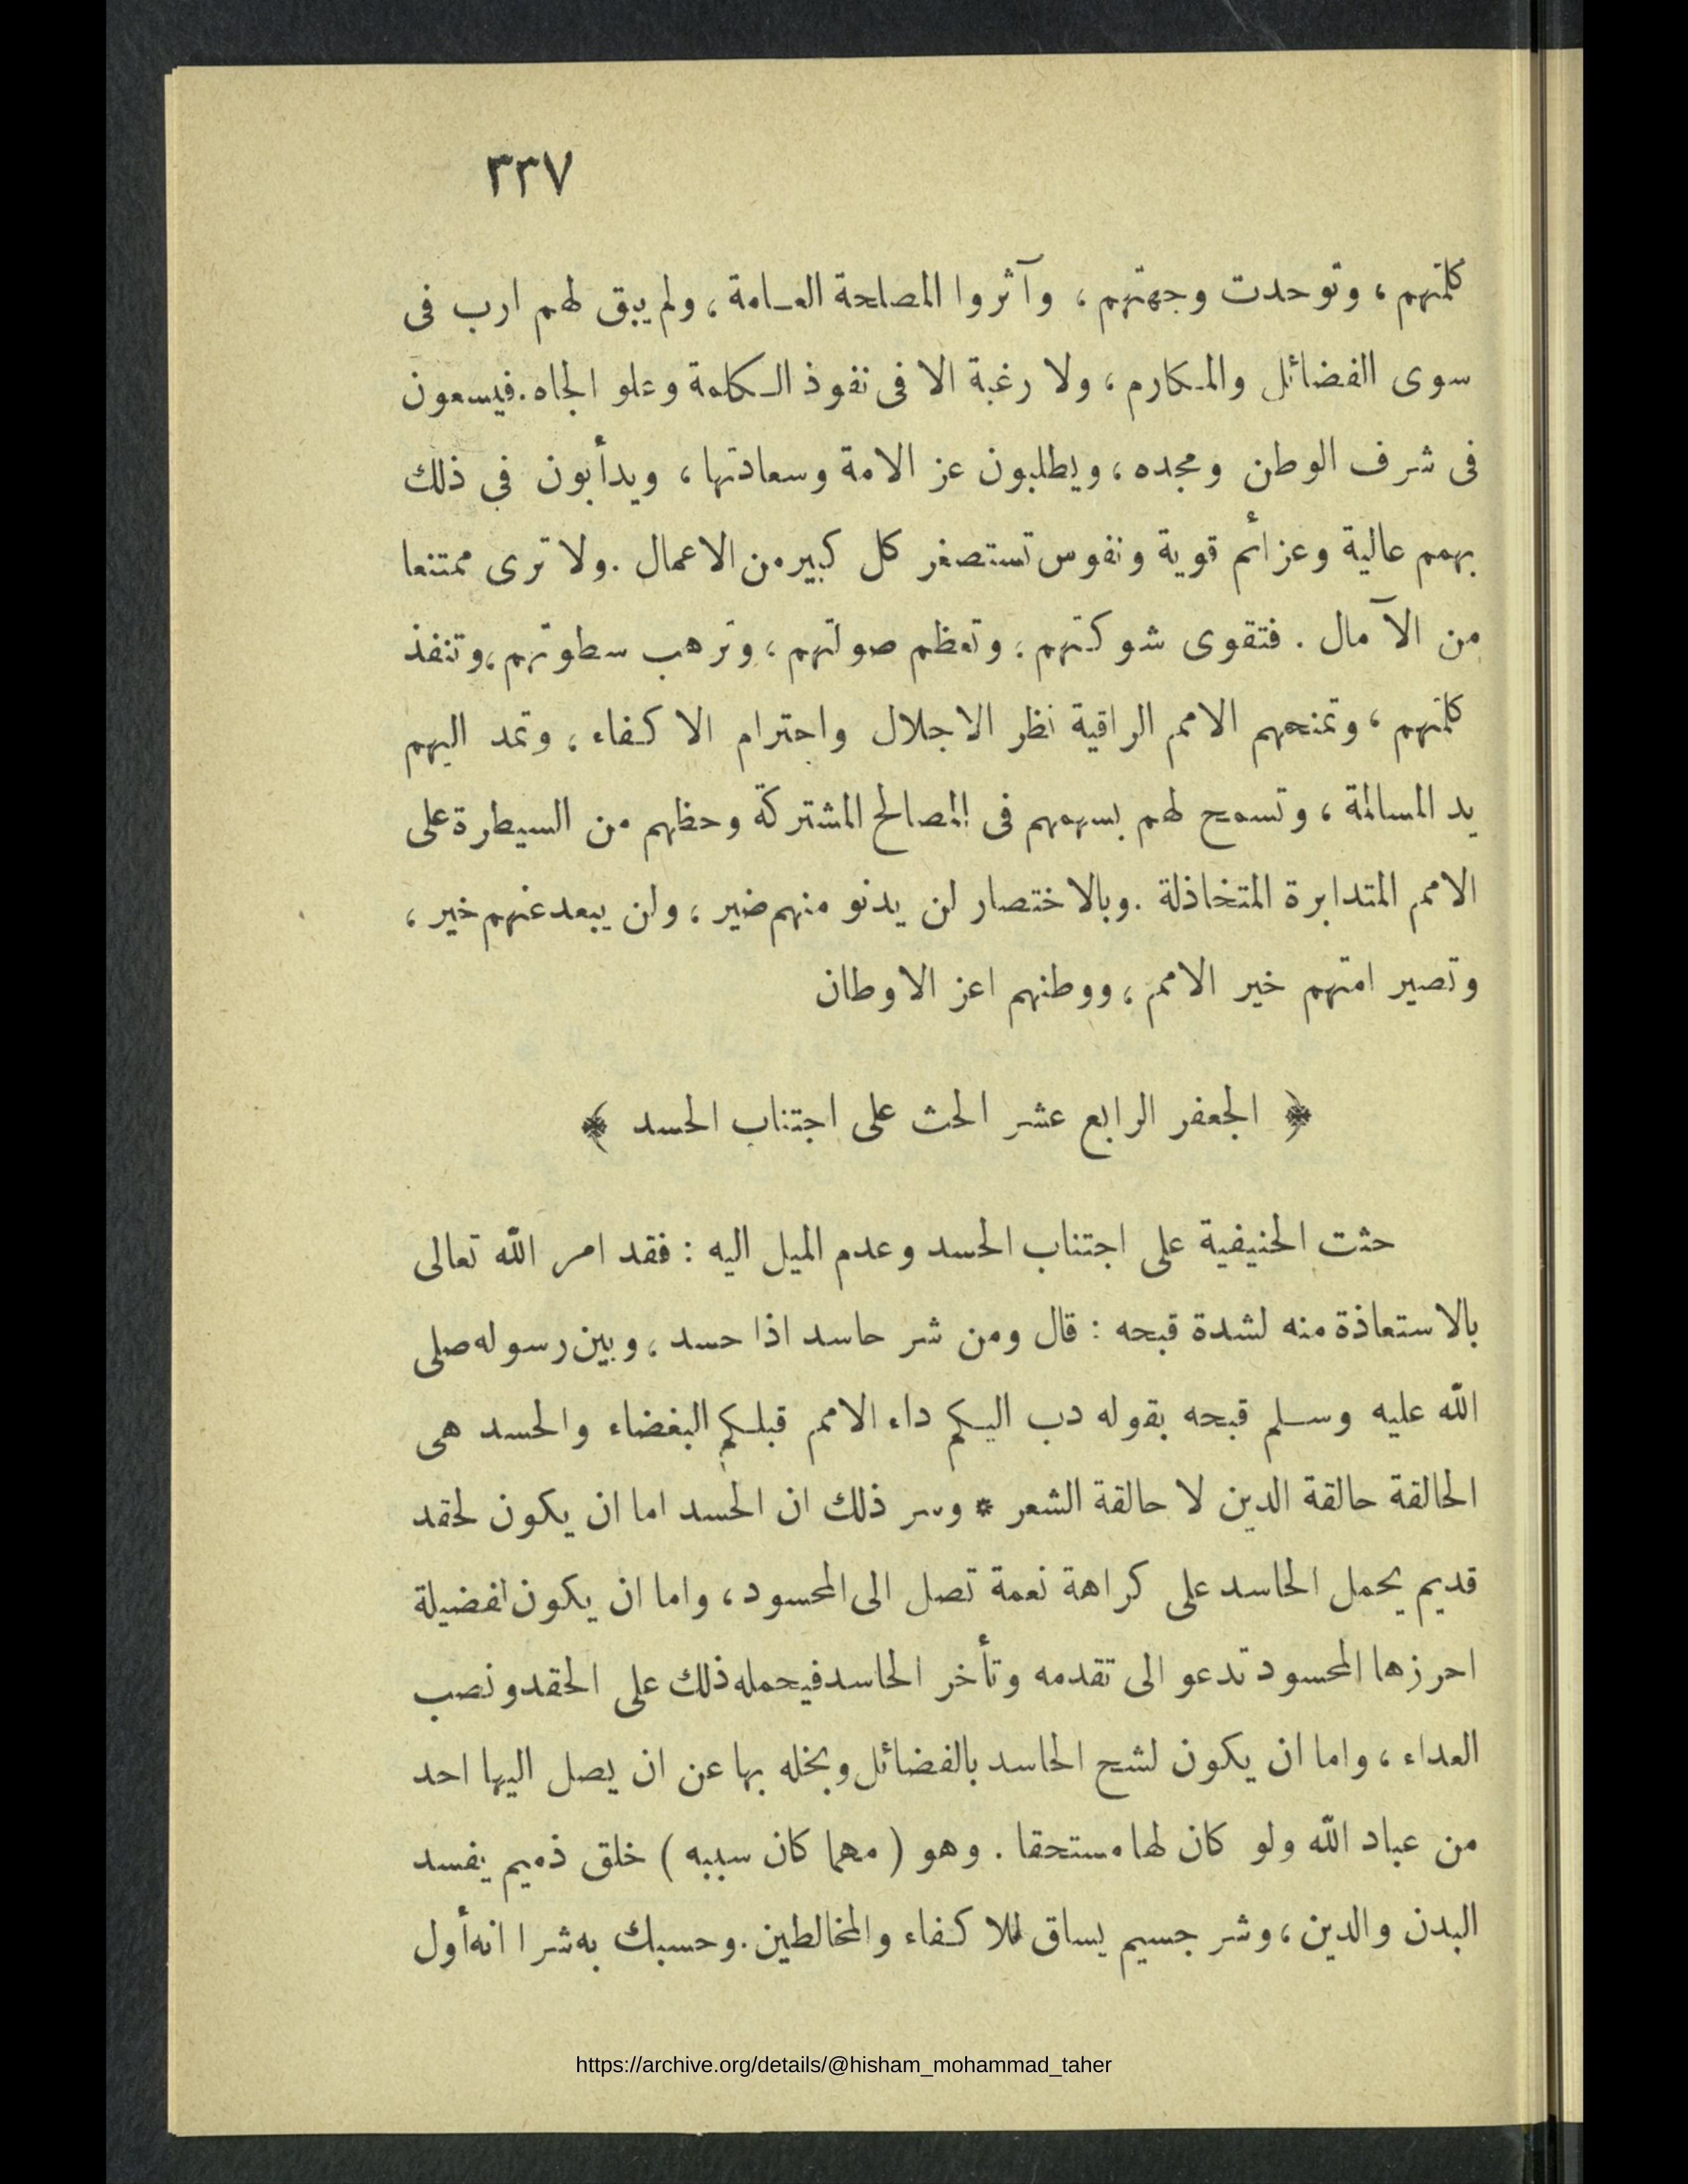 ٣٣٧
كلمتهم ، وتوحدت وجهتهم ، وآثروا المصلحة العامة ، ولم يبق لهم ارب فى
سوى الفضائل والمكارم ، ولا رغبة الا فى نفوذ الكلمة وعلو الجاه . فيسعون
فى شرف الوطن ومجده ، ويطلبون عز الامة وسعادتها ، ويدأبون في ذلك
بهمم عالية وعزائم قوية ونفوس تستصغر كل كبير من الاعمال . ولا ترى ممتنعا
من الآمال . فتقوى شوكتهم ، وتعظم صولتهم ، وترهب سطوتهم ، وتنفذ
كلمتهم ، وتمنحهم الامم الراقية نظر الاجلال واحترام الاكفاء ، وتمد اليهم
يد المسالمة ، وتسمح لهم بسهمهم فى المصالح المشتركة وحظهم من السيطرة على
الامم المتدابرة المتخاذلة . وبالاختصار لن يدنو منهم ضير ، ولن يبعد عنهم خير ،
وتصير امتهم خير الامم ، ووطنهم اعز الاوطان
﴿ الجعفر الرابع عشر الحث على اجتناب الحسد ﴾
حثت الحنيفية على اجتناب الحسد وعدم الميل اليه : فقد امر الله تعالى
بالاستعاذة منه لشدة قبحه : قال ومن شر حاسد اذا حسد ، وبين رسوله صلى
الله عليه وسلم قبحه بقوله دب اليكم داء الامم قبلكم البغضاء والحسد هى
الحالقة حالقة الدين لا حالقة الشعر * وسر ذلك ان الحسد اما ان يكون لحقد
قديم يحمل الحاسد على كراهة نعمة تصل الى المحسود ، واما ان يكون لفضيلة
احرزها المحسود تدعو الى تقدمه وتأخر الحاسد فيحمله ذلك على الحقد ونصب
العداء ، واما ان يكون لشح الحاسد بالفضائل وبخله بها عن ان يصل اليها احد
من عباد الله ولو كان لها مستحقا . وهو ( مهما كان سببه ) خلق ذميم يفسد
البدن والدين ، وشر جسيم يساق للاكفاء والمخالطين . وحسبك به شرا انه أول
https://archive.org/details/@hisham_mohammad_taher